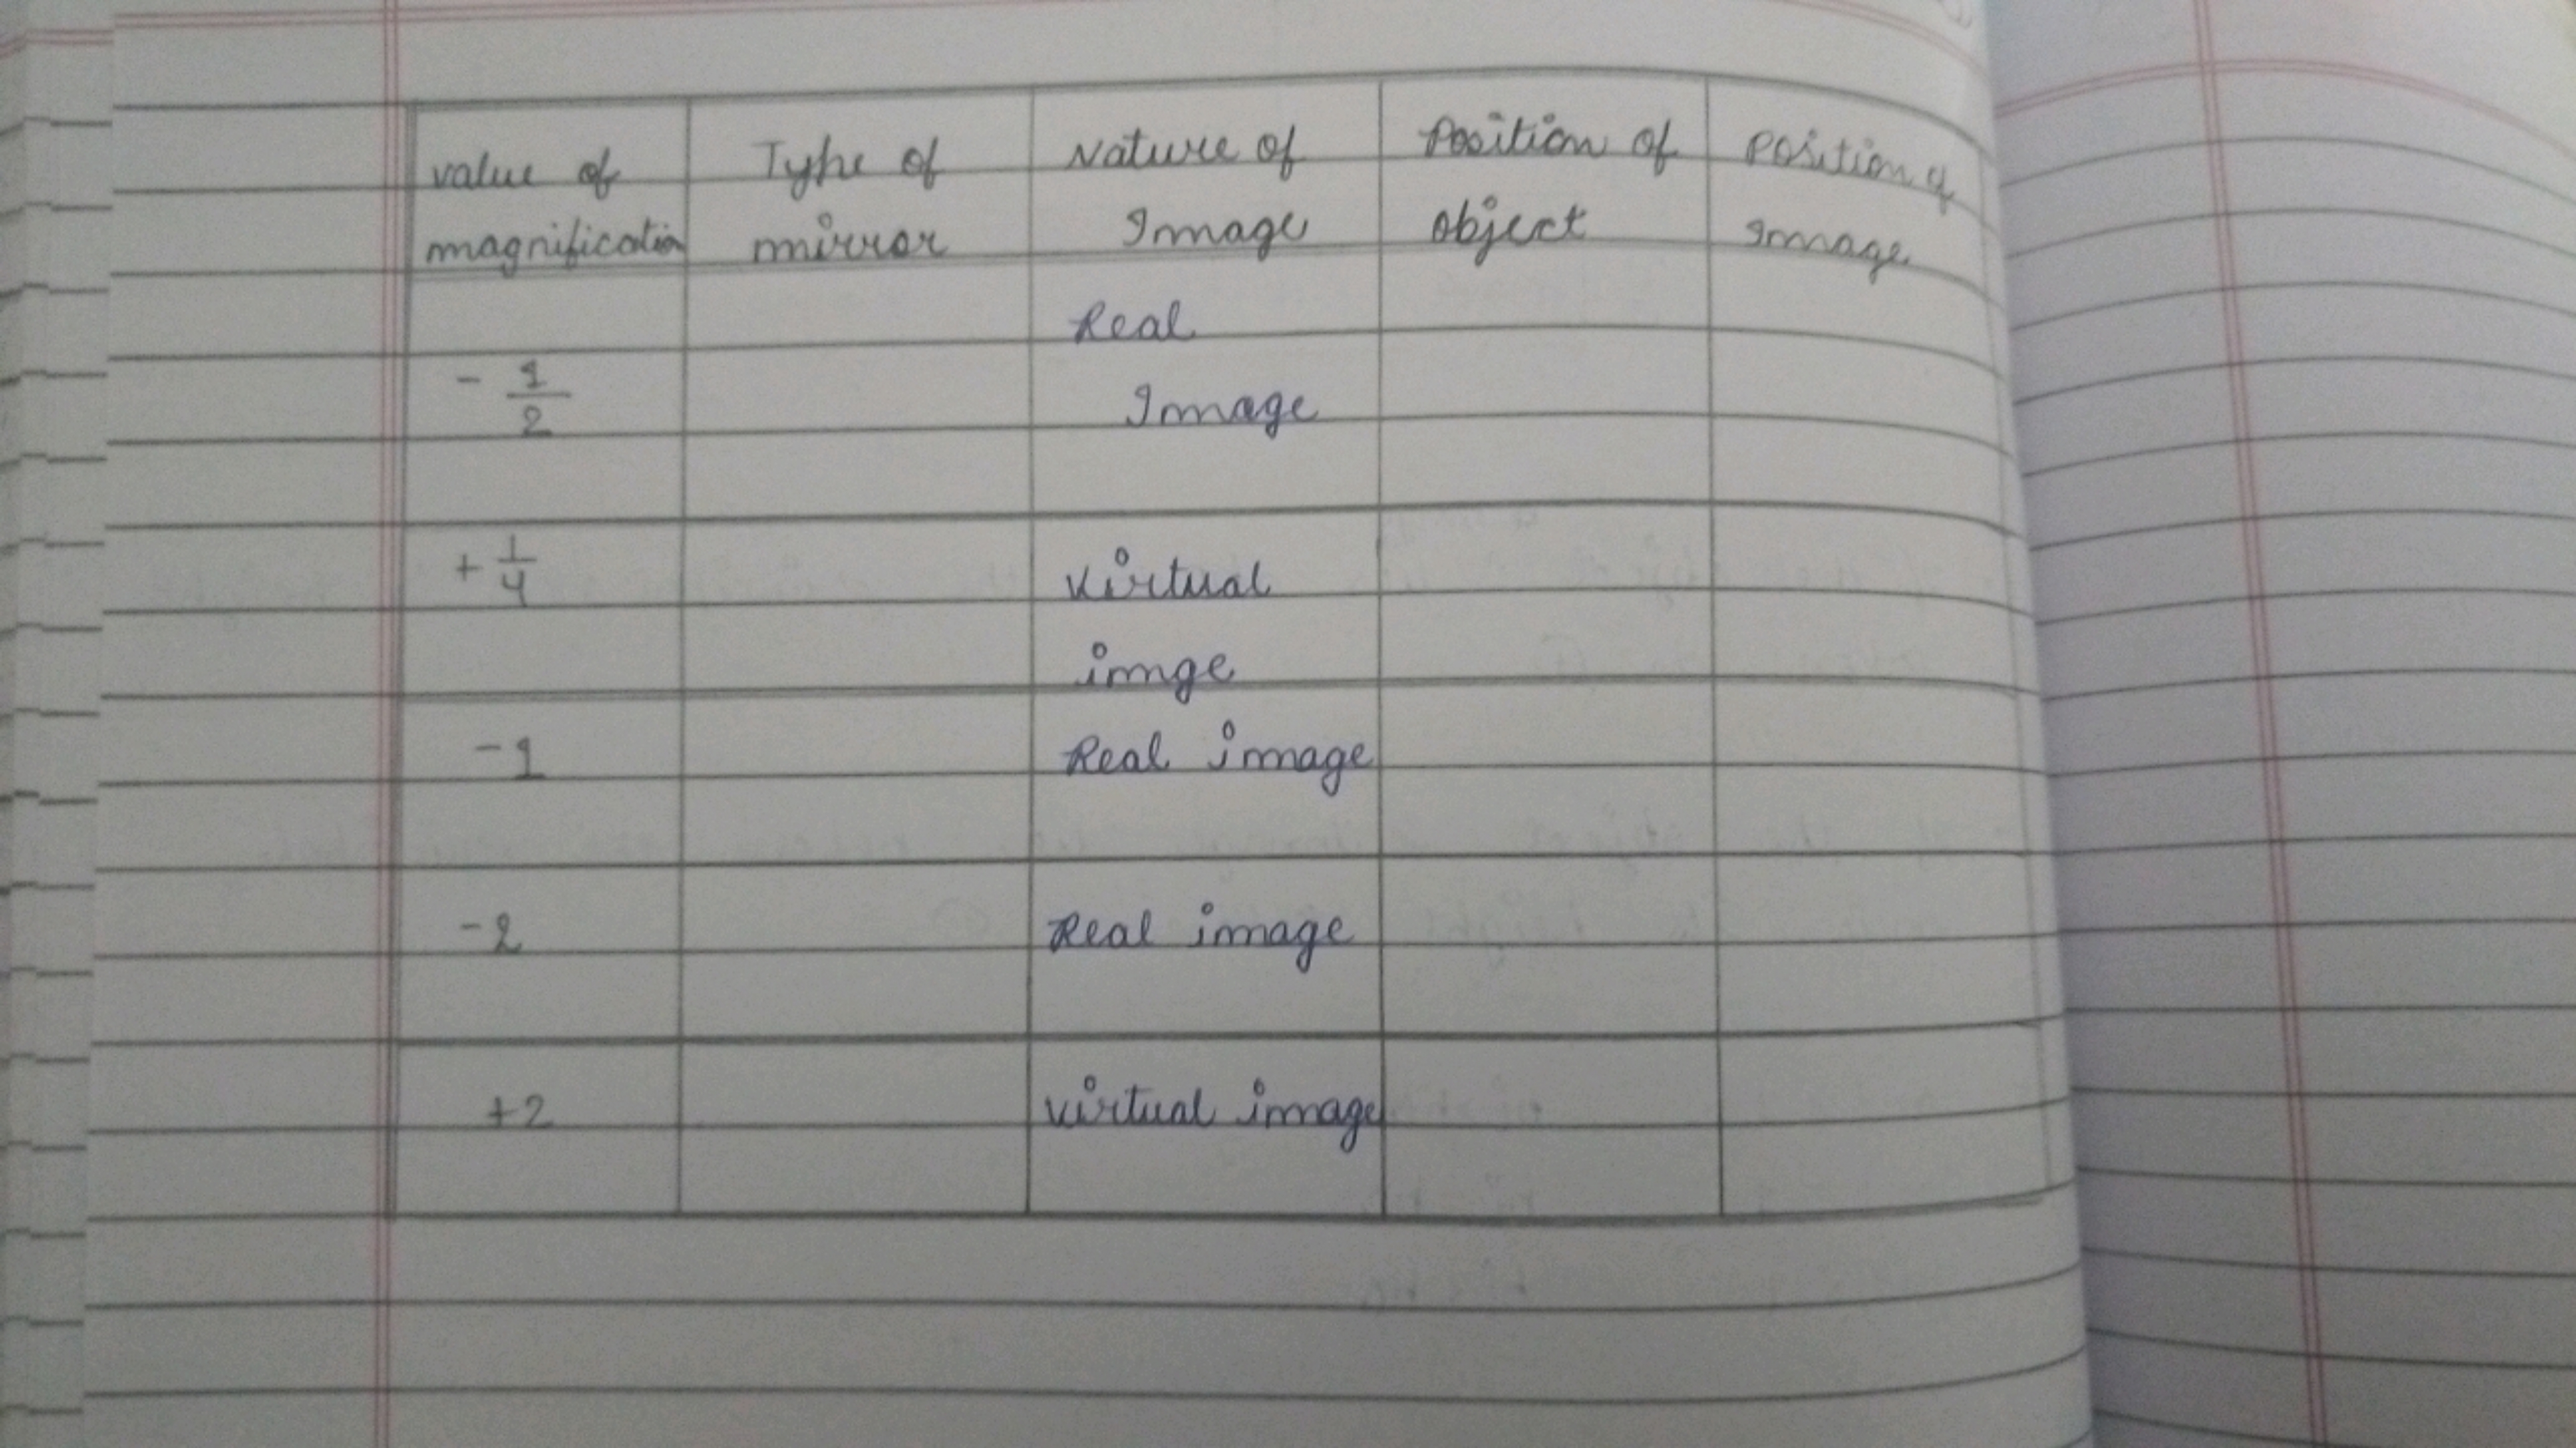 value of magnification
Type of mirror
Nature of Image
Position of object
Position of Image
- 1/2
Real
Image
+ 1/4
Virtual
imge
-1
Real image
-2
Real image
+2
virtual image